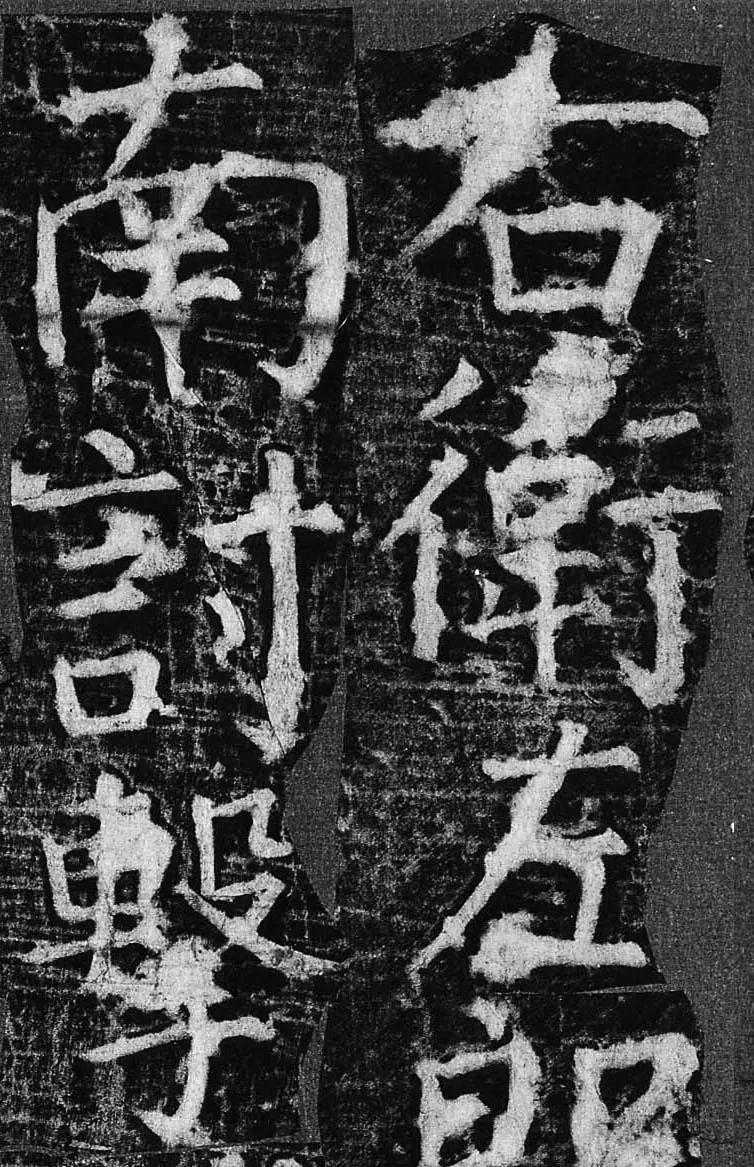 右衛左郎
南討擊